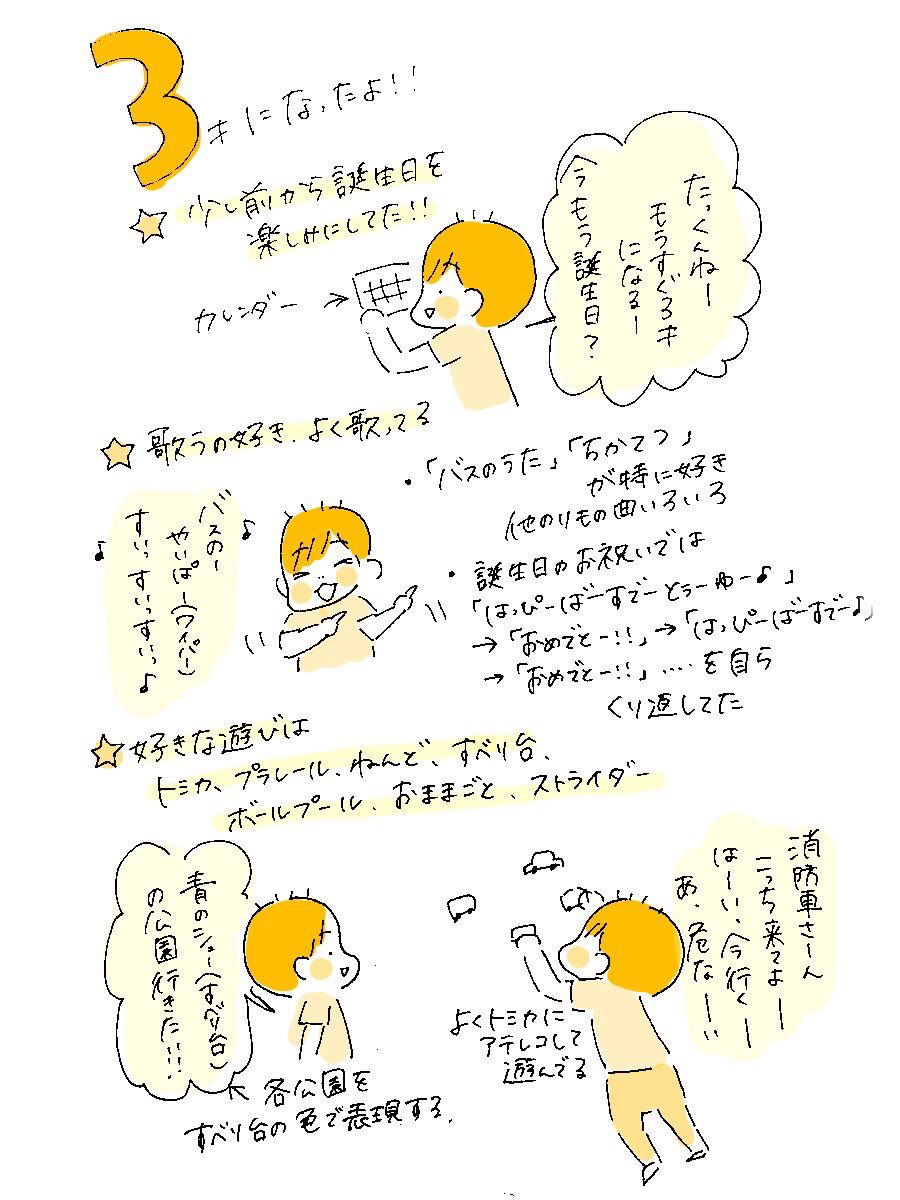 3才になったよ!!
少し前から誕生日を
楽しみにしてた!!
カレンダー →
たっくんねー
もうすぐ3才
になるー
今もう誕生日?
歌うの好き、よく歌ってる
バスのー
やいぱー(ワイパー)
すいっすいっすいっ♪
・「バスのうた」「ちかてつ」
が特に好き
他のりもの曲いろいろ
・誕生日のお祝いでは
「はっぴーばーすでーとぅーゆー♪」
→「おめでとー!!」→「はっぴーばーすでー♪」
→「おめでとー!!」‥‥を自ら
くり返してた
好きな遊びは
トミカ、プラレール、ねんど、すべり台、
ボールプール、おままごと、ストライダー
青のシュー(すべり台)
の公園行きたい!!
↖ 各公園を
すべり台の色で表現する。
消防車さーん
こっち来てよー
はーい、今行くー
あ、危なーい
よくトミカに
アテレコして
遊んでる